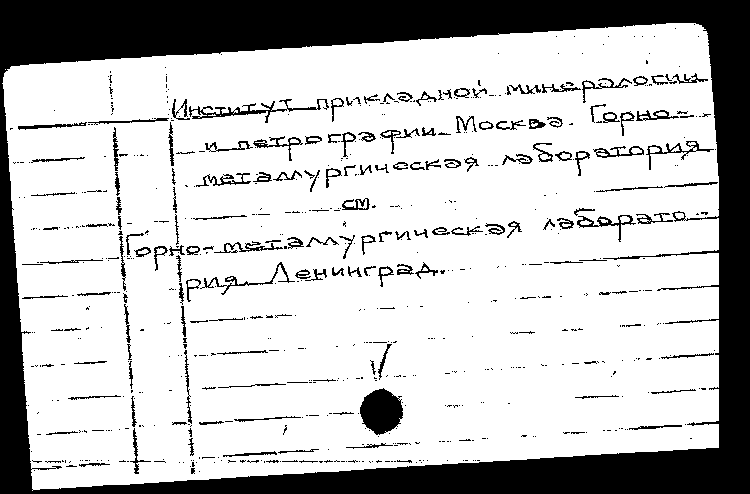 Институт прикладной минералогии
и петрографии Москва. Горно-
металлургическая лаборатория
см.
Горно-металлургическая лаборато-
рия. Ленинград.